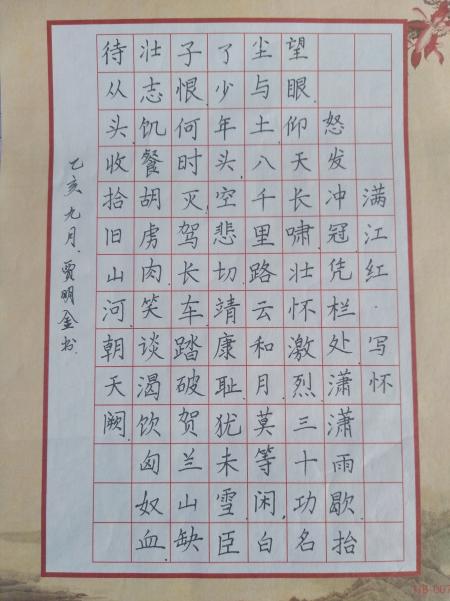 满江红·写怀
怒发冲冠，凭栏处，潇潇雨歇，抬
望眼，仰天长啸，壮怀激烈。三十功名
尘与土，八千里路云和月。莫等闲，白
了少年头，空悲切。靖康耻，犹未雪，臣
子恨，何时灭。驾长车，踏破贺兰山缺。
壮志饥餐胡虏肉，笑谈渴饮匈奴血。
待从头，收拾旧山河，朝天阙。
乙亥九月，贾明金书